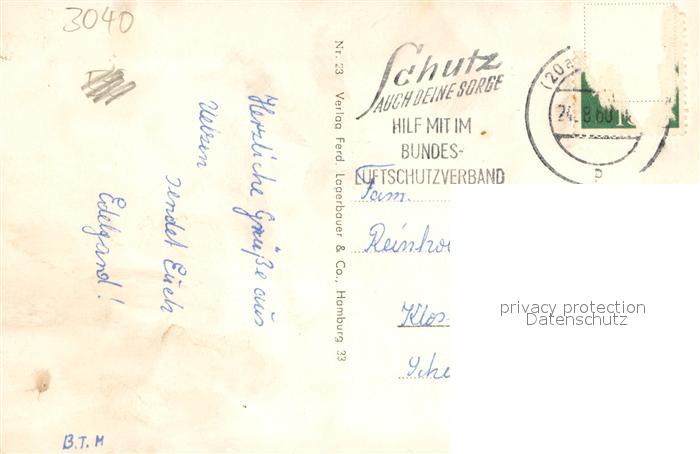 3040
Herzliche Grüße aus
Uelzen
sendet Euch
Edelgard!
B.T.M
Nr. 23 Verlag Ferd. Lagerbauer & Co., Hamburg 33
Schutz
AUCH DEINE SORGE
HILF MIT IM
BUNDES-
LUFTSCHUTZVERBAND
(20a
24.8.60
p
Fam.
Reinho
Klos
Sche
privacy protection
Datenschutz